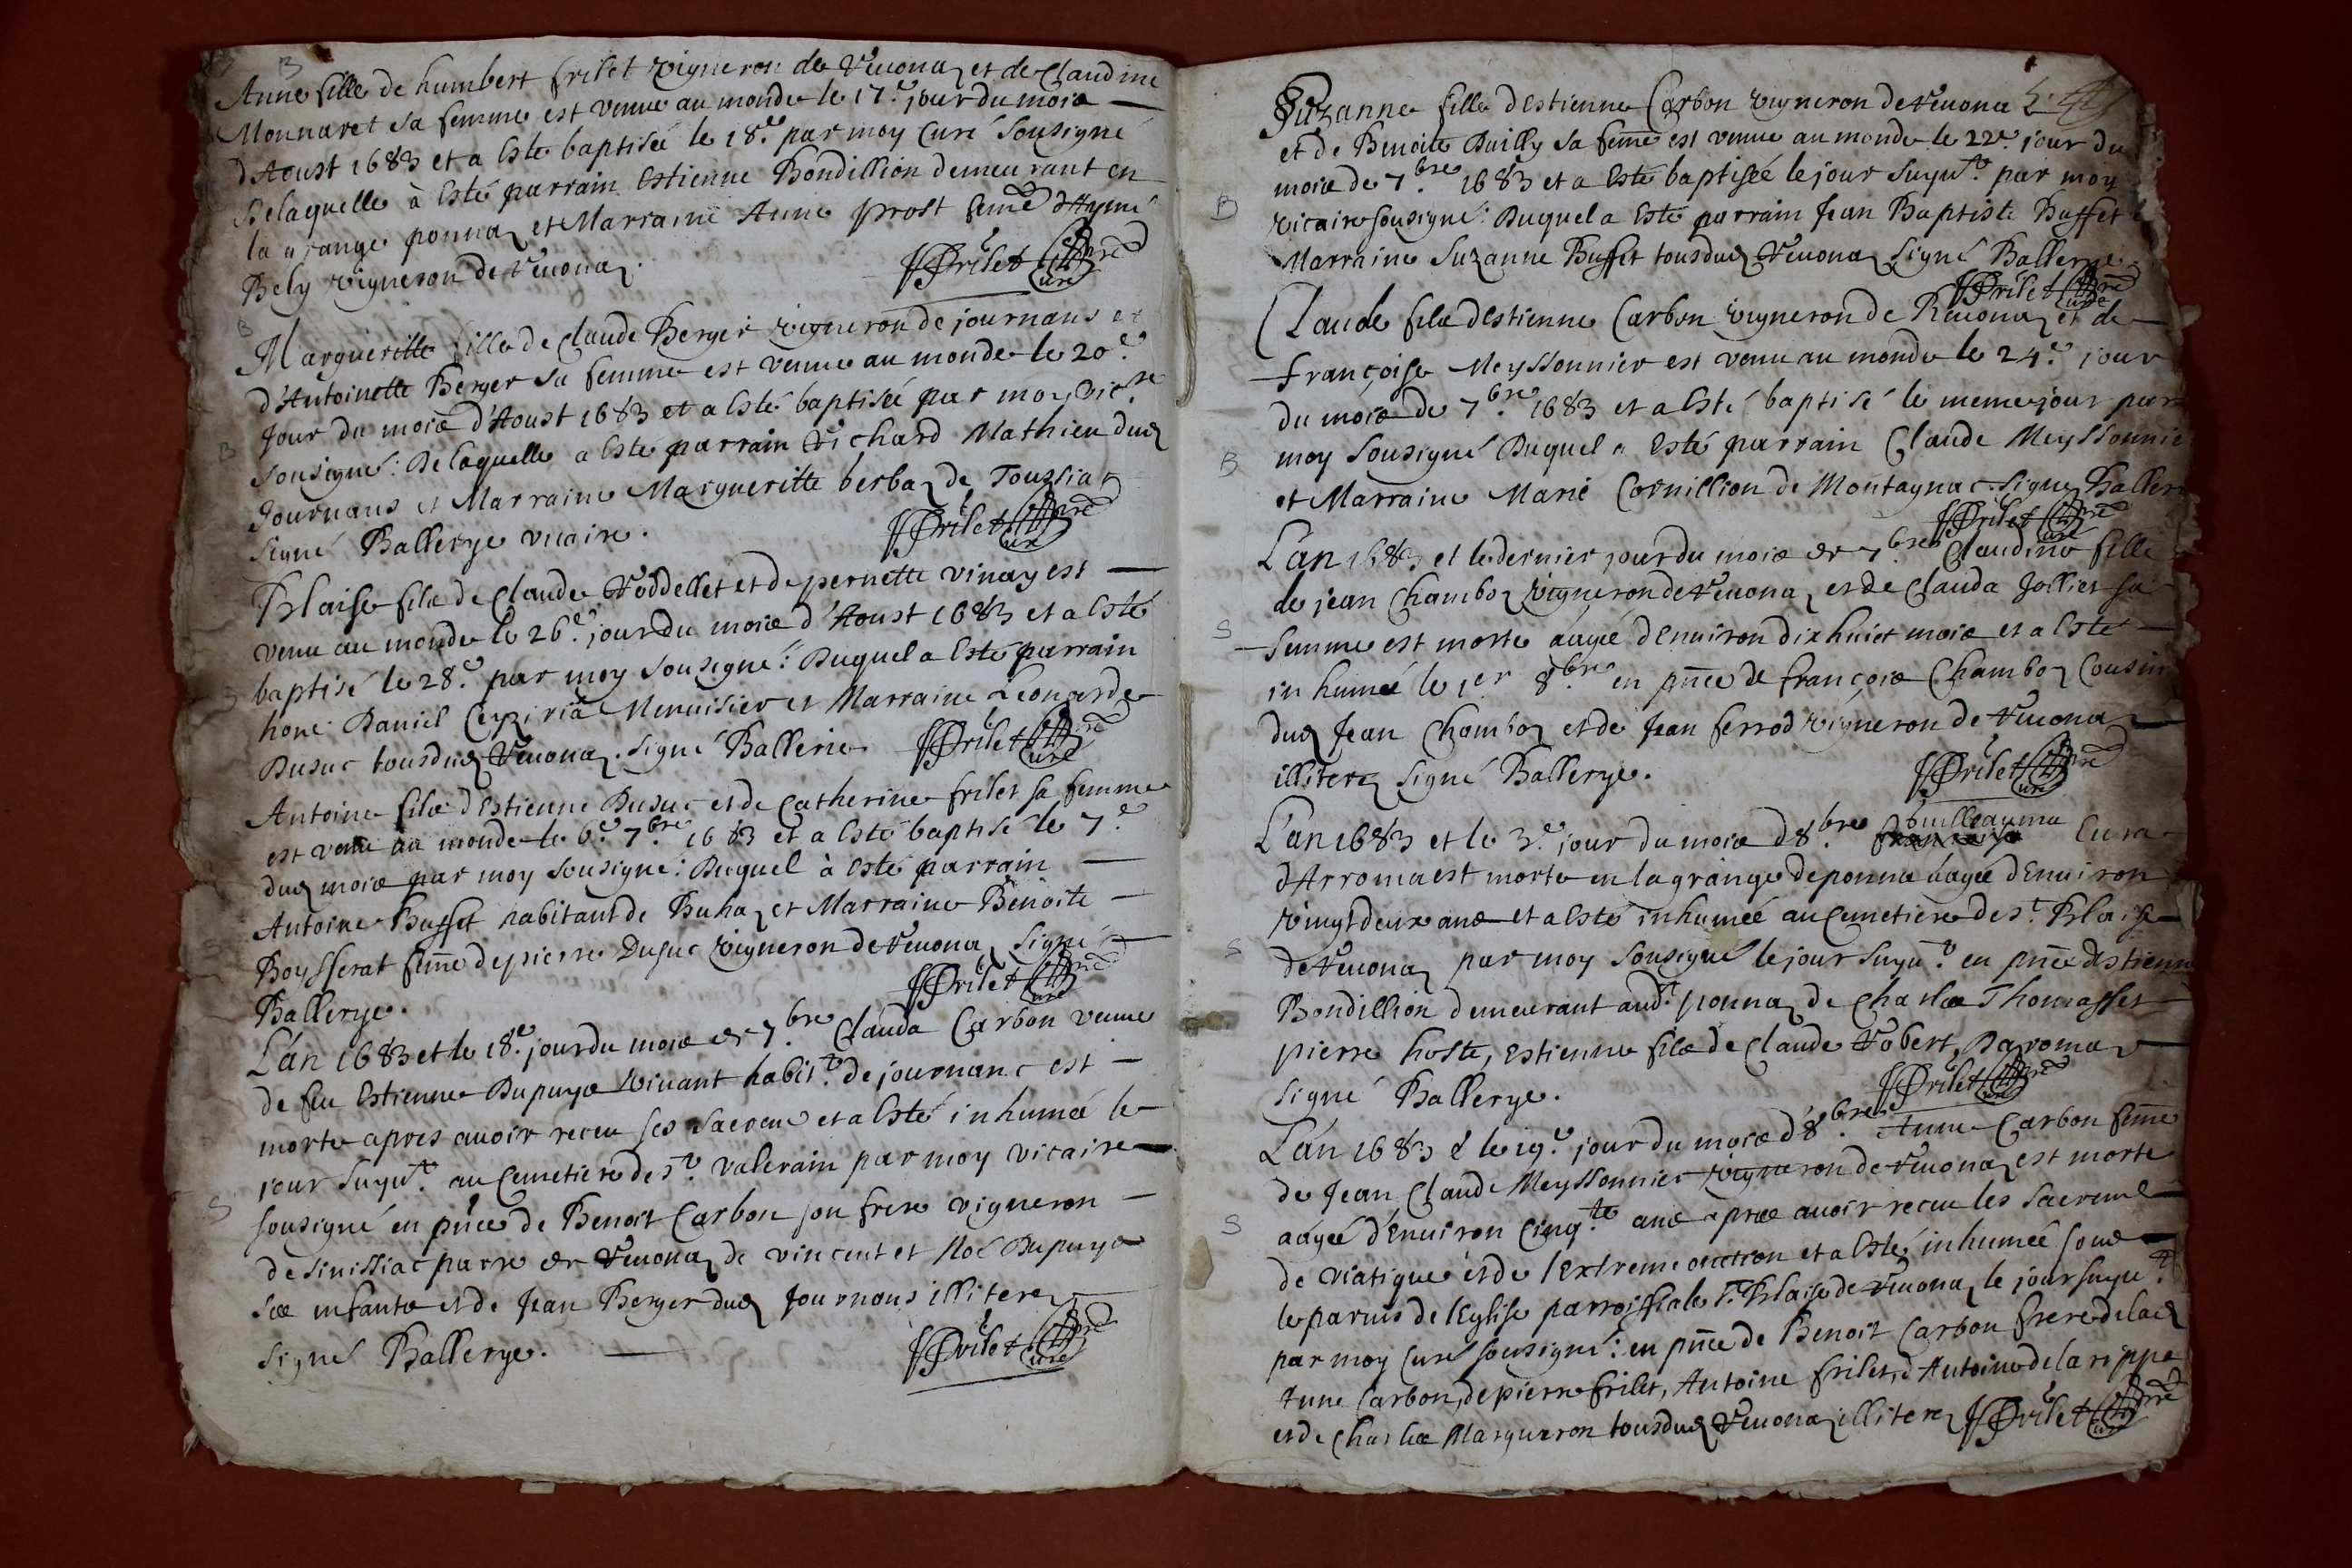 B
Anne fille de humbert frilet vigneron de Reuonaz et de Claudine
Monnaret sa femme est venue au monde le 17.e jour du mois
d'Aoust 1683 et a Esté baptisée le 18.e par moy Curé Sousigné
Delaquelle à Esté parrain Estienne Bondillion demeurant en
la grange ponnaz et Marraine Anne prost feme d'Aymé
Bely vigneron de Reuonaz.
Frilet Curé
B
Margueritte fille de Claude Berger vigneron de journans et
d'Antoinette Berger sa femme est venue au monde le 20.e
Jour du mois d'Aoust 1683 et a Esté baptisée par moy vic.re
B
sousigné: Delaquelle a Esté parrain Richard Mathieu dud
Journans et Marraine Margueritte berbaz de Toussiaz
signé Ballerye vicaire.
Frilet Curé
Blaise fils de Claude Roddellet et de pernette vinay est
venu au monde le 26.e jour du mois d'Aoust 1683 et a Esté
baptisé le 28.e par moy sousigné: Duquel a Esté parrain
B
hone Daniel Ceyziria Menuisier et Marraine Leonarde
Dusuc tousdud Reuonaz. signé Ballerie
Frilet Curé
Antoine fils d'Estienne Dusuc et de Catherine frilet sa femme
est venu au monde le 6.e 7.bre 1683 et a Esté baptisé le 7.e
dud mois par moy sousigné: Duquel à Esté parrain
Antoine Buffet habitant de Buhaz et Marraine Benoite
B
Boysserat feme de pierre Dusuc vigneron de Reuonaz signé
Ballerye.
Frilet Curé
L'an 1683 et le 18.e jour du mois de 7.bre Clauda Carbon veuue
de feu Estienne Dupuys viuant habit.t de journanc est
morte apres auoir receu ses sacrens et a Esté inhumée le
jour suyu.t au Cemetiere de s.t valerain par moy vicaire
S
sousigné en pnce de Benoit Carbon son frere vigneron
de sinissiac parre de Reuonaz de vincent et Noé Dupuys
ses enfants et de Jean Berger dud Journans illiterez
signé Ballerye.
Frilet Curé
Suzanne fille d'Estienne Carbon vigneron de Reuonaz
et de Benoite Bailly sa feme est venue au monde le 22.e jour du
mois de 7.bre 1683 et a Esté baptisée le jour suyu.t par moy
B
vicaire sousigné: Duquel a Esté parrain Jean Baptiste Buffet
Marraine Suzanne Buffet tousdud Reuonaz signé Ballerye.
Frilet Curé
Claude fils d'Estienne Carbon vigneron de Reuonaz et de
françoise Meyssonnier est venu au monde le 24.e jour
du mois de 7.bre 1683 et a Esté baptisé le meme jour par
moy sousigné Duquel a Esté parrain Claude Meyssonnie
B
et Marraine Marie Cornillion de Montagnac. signé Baller
Frilet Curé
L'an 1683 et le dernier jour du mois de 7.bre Claudine fille
de jean Chamboz vigneron de Reuonaz et de Clauda Jollies sa
S
femme est morte áagée d'Enuiron dix huict mois et a Esté
inhumée le 1er 8.bre en pnce de françois Chamboz Cousin
dud Jean Chamboz et de Jean ferrod vigneron de Reuonaz
illiterez signé Ballerye.
Frilet Curé
L'an 1683 et le 3.e jour du mois d'8.bre guilleauma Cura
d'Arroma est morte en la grange de ponna áagée d'Enuiron
vingtdeux ans et a Esté inhumée au Cemetiere de s.t Blaise
S
de Reuonaz par moy sousigné le jour suyu.t en pnce d'Estienne
Bondillion demeurant aud.t ponnaz de Charles Thomasset
pierre hoste, Estienne fils de Claude Robert, Daromaz
signé Ballerye.
Frilet Curé
L'an 1683 & le 19.e jour du mois d'8.bre Anne Carbon feme
de Jean Claude Meyssonnier vigneron de Reuonaz est morte
S
aagée d'Enuiron Cinq.te ans apres auoir receu les sacremens
de viatique et de l'extreme onction et a Esté inhumée sous
le paruis de l'Eglise parroissiale s.t Blaise de Reuonaz le jour suyu.t
par moy Curé sousigné: en pnce de Benoit Carbon frere de lad
Anne Carbon, de pierre frilet, Antoine frilet, d'Antoine de la rippe
et de Charles Margueron tousdud Reuonaz illiterez Frilet Curé